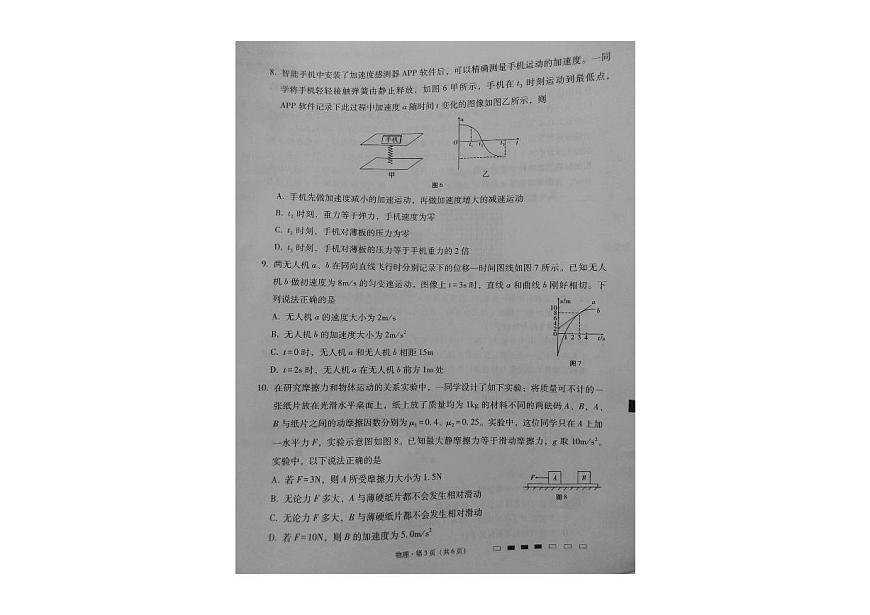 8. 智能手机中安装了加速度感测器 APP 软件后，可以精确测量手机运动的加速度。一同
学将手机轻轻接触弹簧由静止释放，如图 6 甲所示，手机在 t₃ 时刻运动到最低点，
APP 软件记录下此过程中加速度 a 随时间 t 变化的图像如图乙所示，则
手机
a
O t₁ t₂ t₃ t
甲 乙
图 6
A. 手机先做加速度减小的加速运动，再做加速度增大的减速运动
B. t₂ 时刻，重力等于弹力，手机速度为零
C. t₂ 时刻，手机对薄板的压力为零
D. t₃ 时刻，手机对薄板的压力等于手机重力的 2 倍
9. 两无人机 a、b 在同向直线飞行时分别记录下的位移—时间图线如图 7 所示。已知无人
机 b 做初速度为 8m/s 的匀变速运动，图像上 t=3s 时，直线 a 和曲线 b 刚好相切。下
列说法正确的是
x/m
a
b
10
8
6
4
2
0 1 2 3 4 t/s
图 7
A. 无人机 a 的速度大小为 2m/s
B. 无人机 b 的加速度大小为 2m/s²
C. t=0 时，无人机 a 和无人机 b 相距 15m
D. t=2s 时，无人机 a 在无人机 b 前方 1m 处
10. 在研究摩擦力和物体运动的关系实验中，一同学设计了如下实验：将质量可不计的一
张纸片放在光滑水平桌面上，纸上放了质量均为 1kg 的材料不同的两砝码 A、B，A、
B 与纸片之间的动摩擦因数分别为 μ₁=0.4、μ₂=0.25。实验中，这位同学只在 A 上加
一水平力 F，实验示意图如图 8。已知最大静摩擦力等于滑动摩擦力，g 取 10m/s²。
实验中，以下说法正确的是
A. 若 F=3N，则 A 所受摩擦力大小为 1.5N
B. 无论力 F 多大，A 与薄硬纸片都不会发生相对滑动
C. 无论力 F 多大，B 与薄硬纸片都不会发生相对滑动
D. 若 F=10N，则 B 的加速度为 5.0m/s²
F A B
图 8
物理·第 3 页（共 6 页）